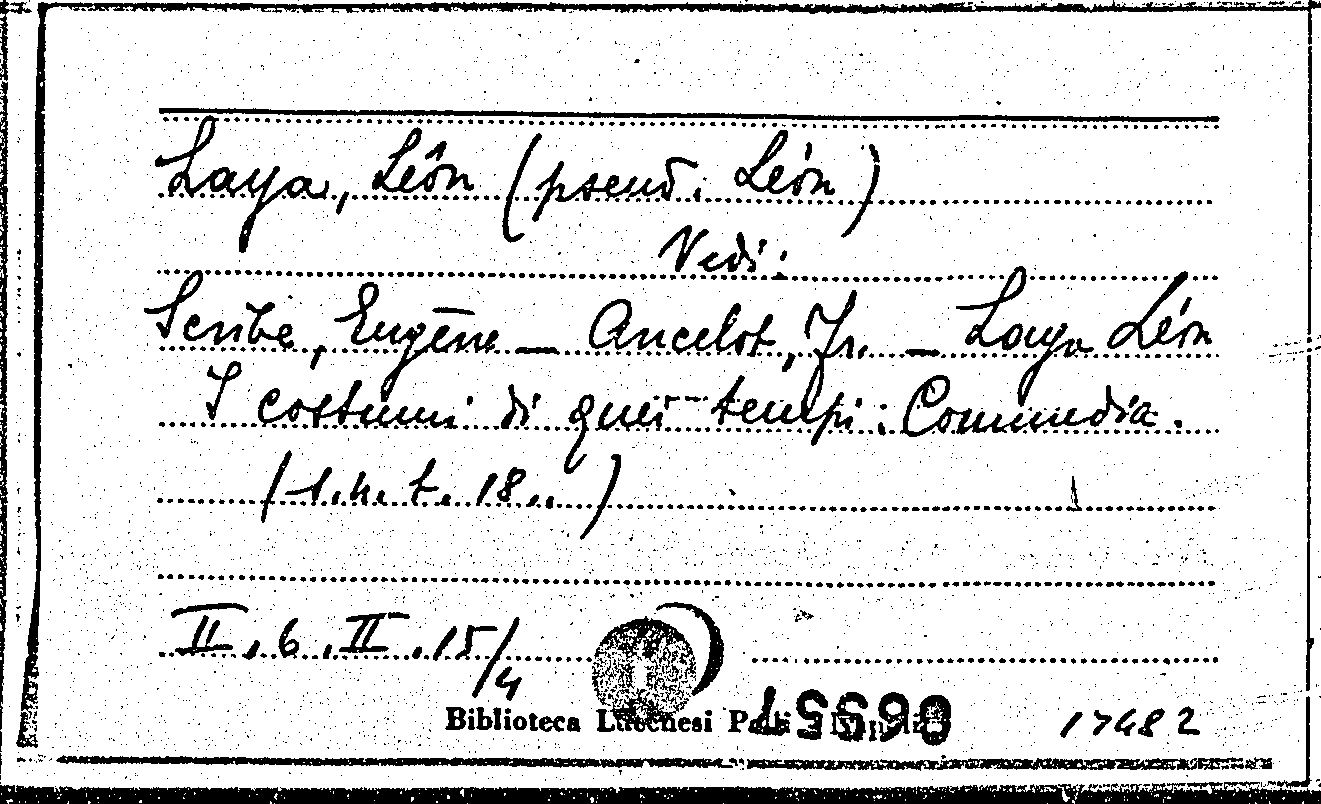 Laya, Léon (pseud. Léon)
Vedi:
Scribe, Eugène — Ancelot, Jr. — Laya Léon
I costumi di quei tempi: Commedia.
(s.n.t. 18..)
II.6.II.15/4
Biblioteca Lucchesi Palli
17482